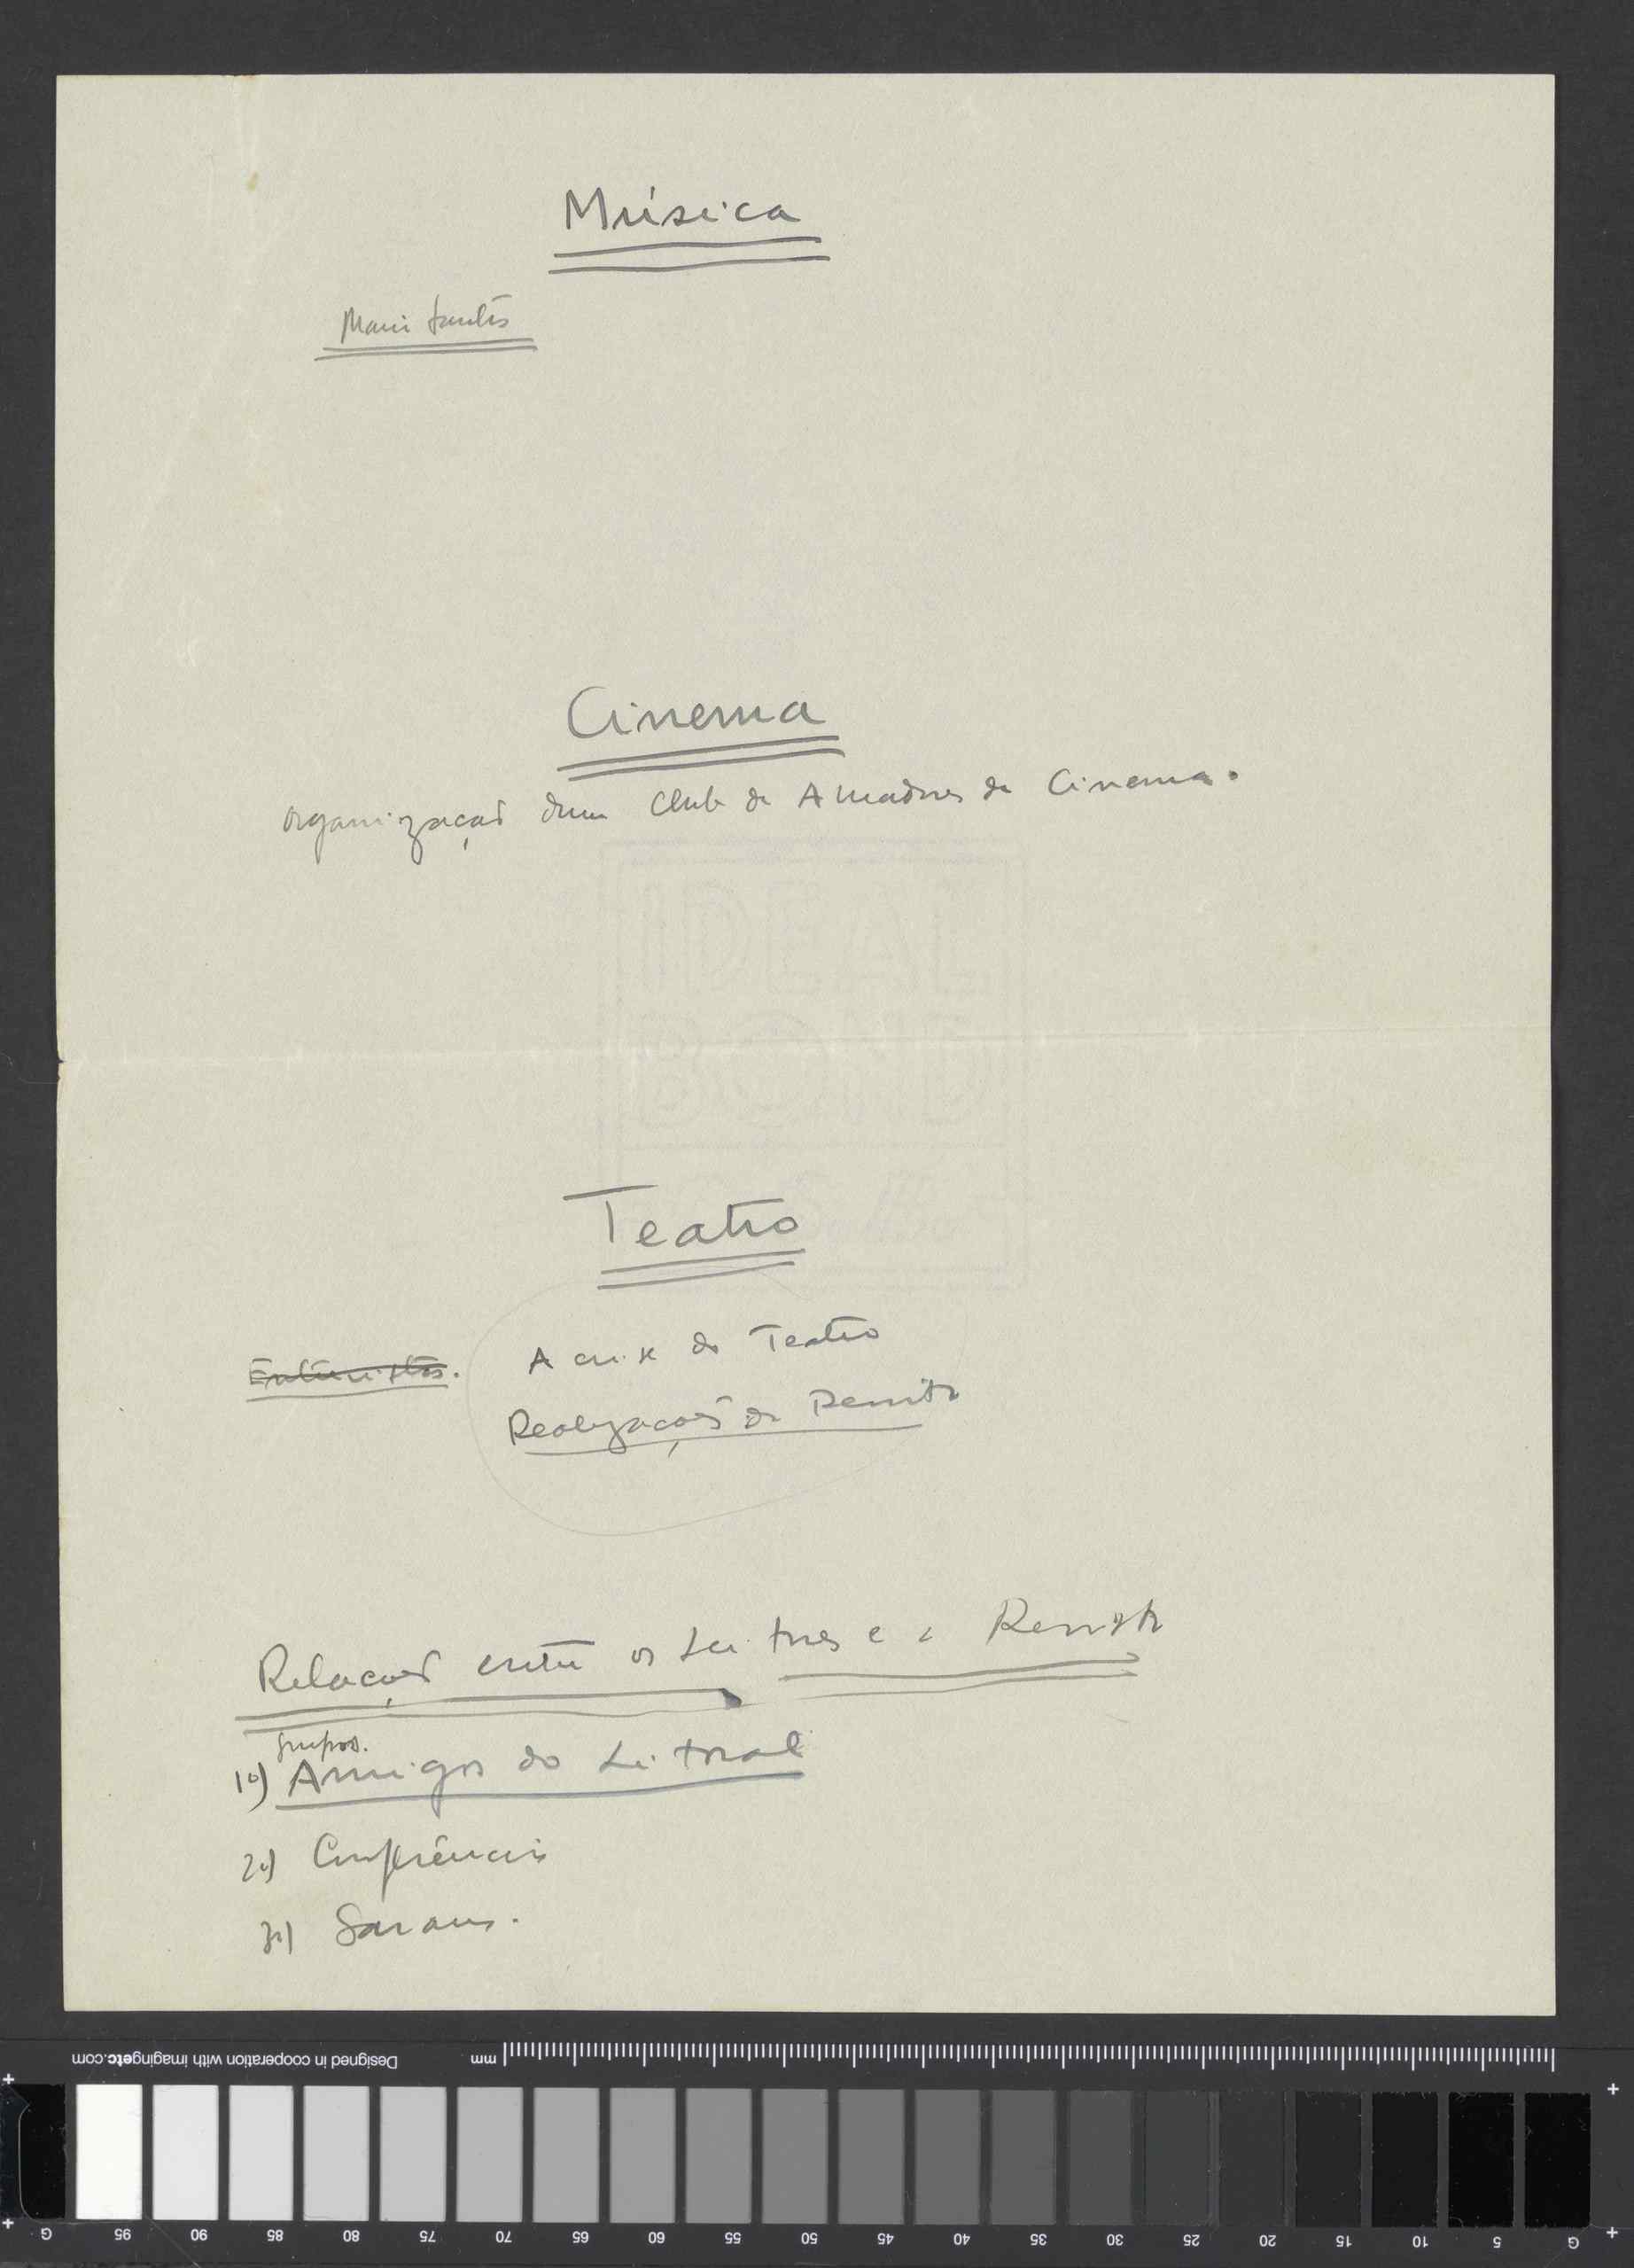 Música
Cinema
Organização dum Club de Amadores de Cinema.
IDEAL
BOND
Teatro
A crise do Teatro
Realizações da Revista
Relações entre os Leitores e a Revista
grupos.
1º) Amigos do Litoral
2º) Conferências
3º) Saraus.
Designed in cooperation with imagingetc.com
mm
G 95 90 85 80 75 70 65 60 55 50 45 40 35 30 25 20 15 10 5 G